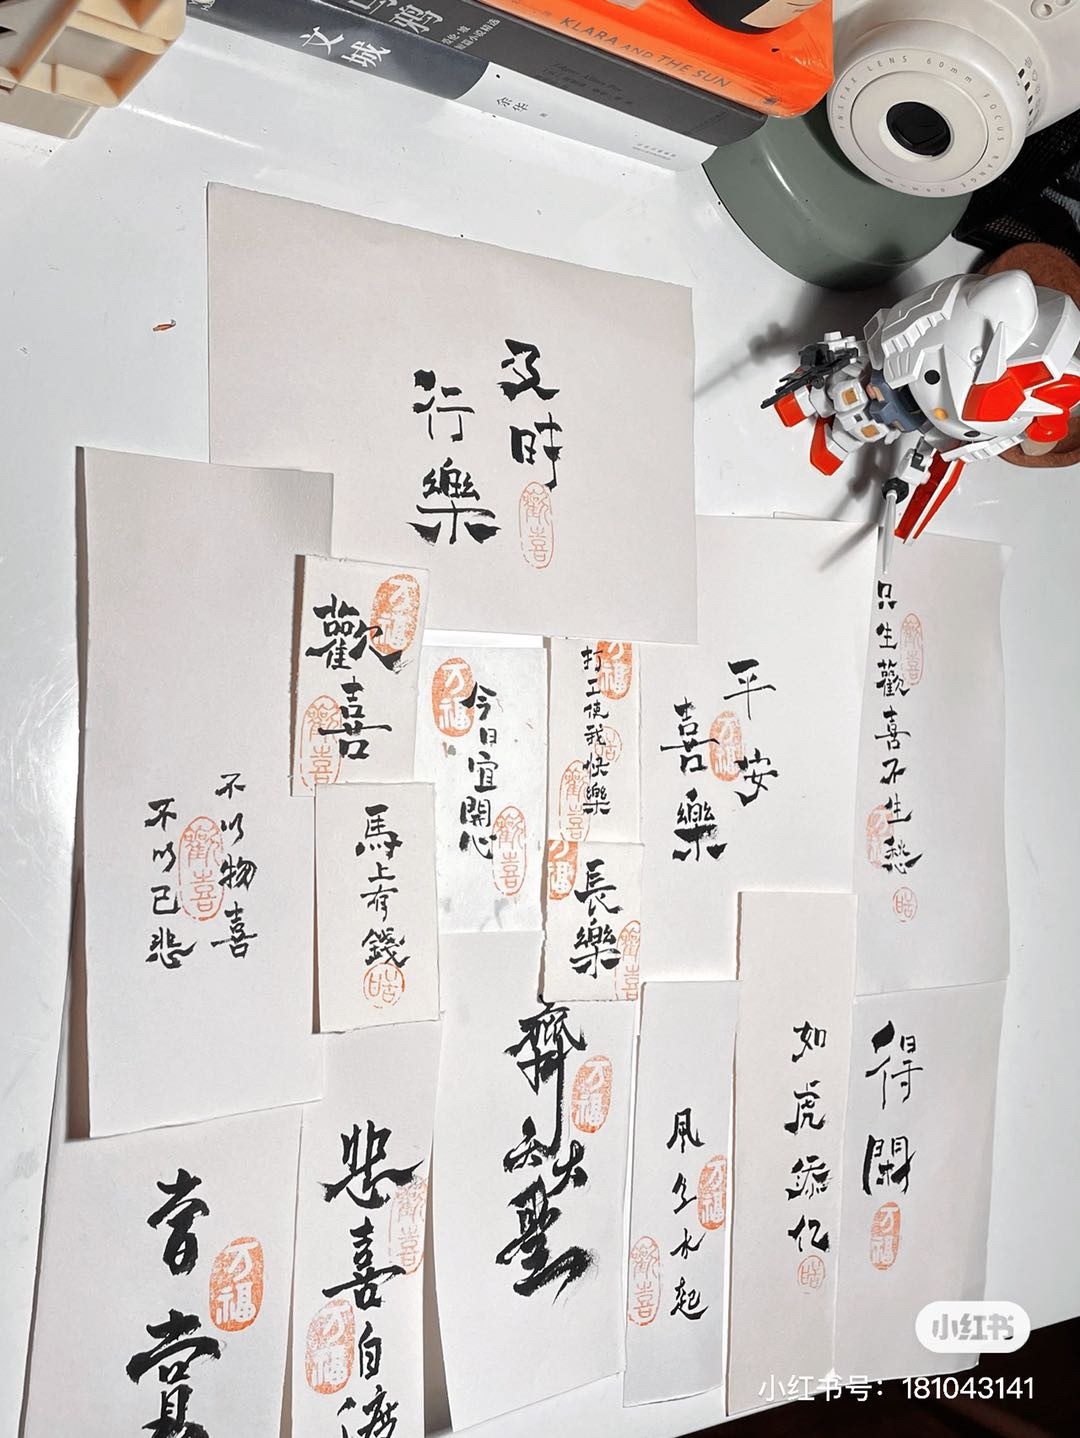 文城
余华
KLARA AND THE SUN
INSTAX LENS 60mm FOCUS RANGE 0.6m-∞
及時
行樂
歡喜
歡喜
万福
歡喜
不以物喜
不以己悲
歡喜
馬上有錢
皓
今日宜開心
万福
歡喜
打工使我快樂
万福
歡喜
長樂
万福
歡喜
平安
喜樂
万福
只生歡喜不生愁
歡喜
皓
悲喜自渡
歡喜
万福
齊天大聖
万福
風生水起
万福
歡喜
如虎添亿
皓
得閑
万福
万福
小红书
小红书号：181043141